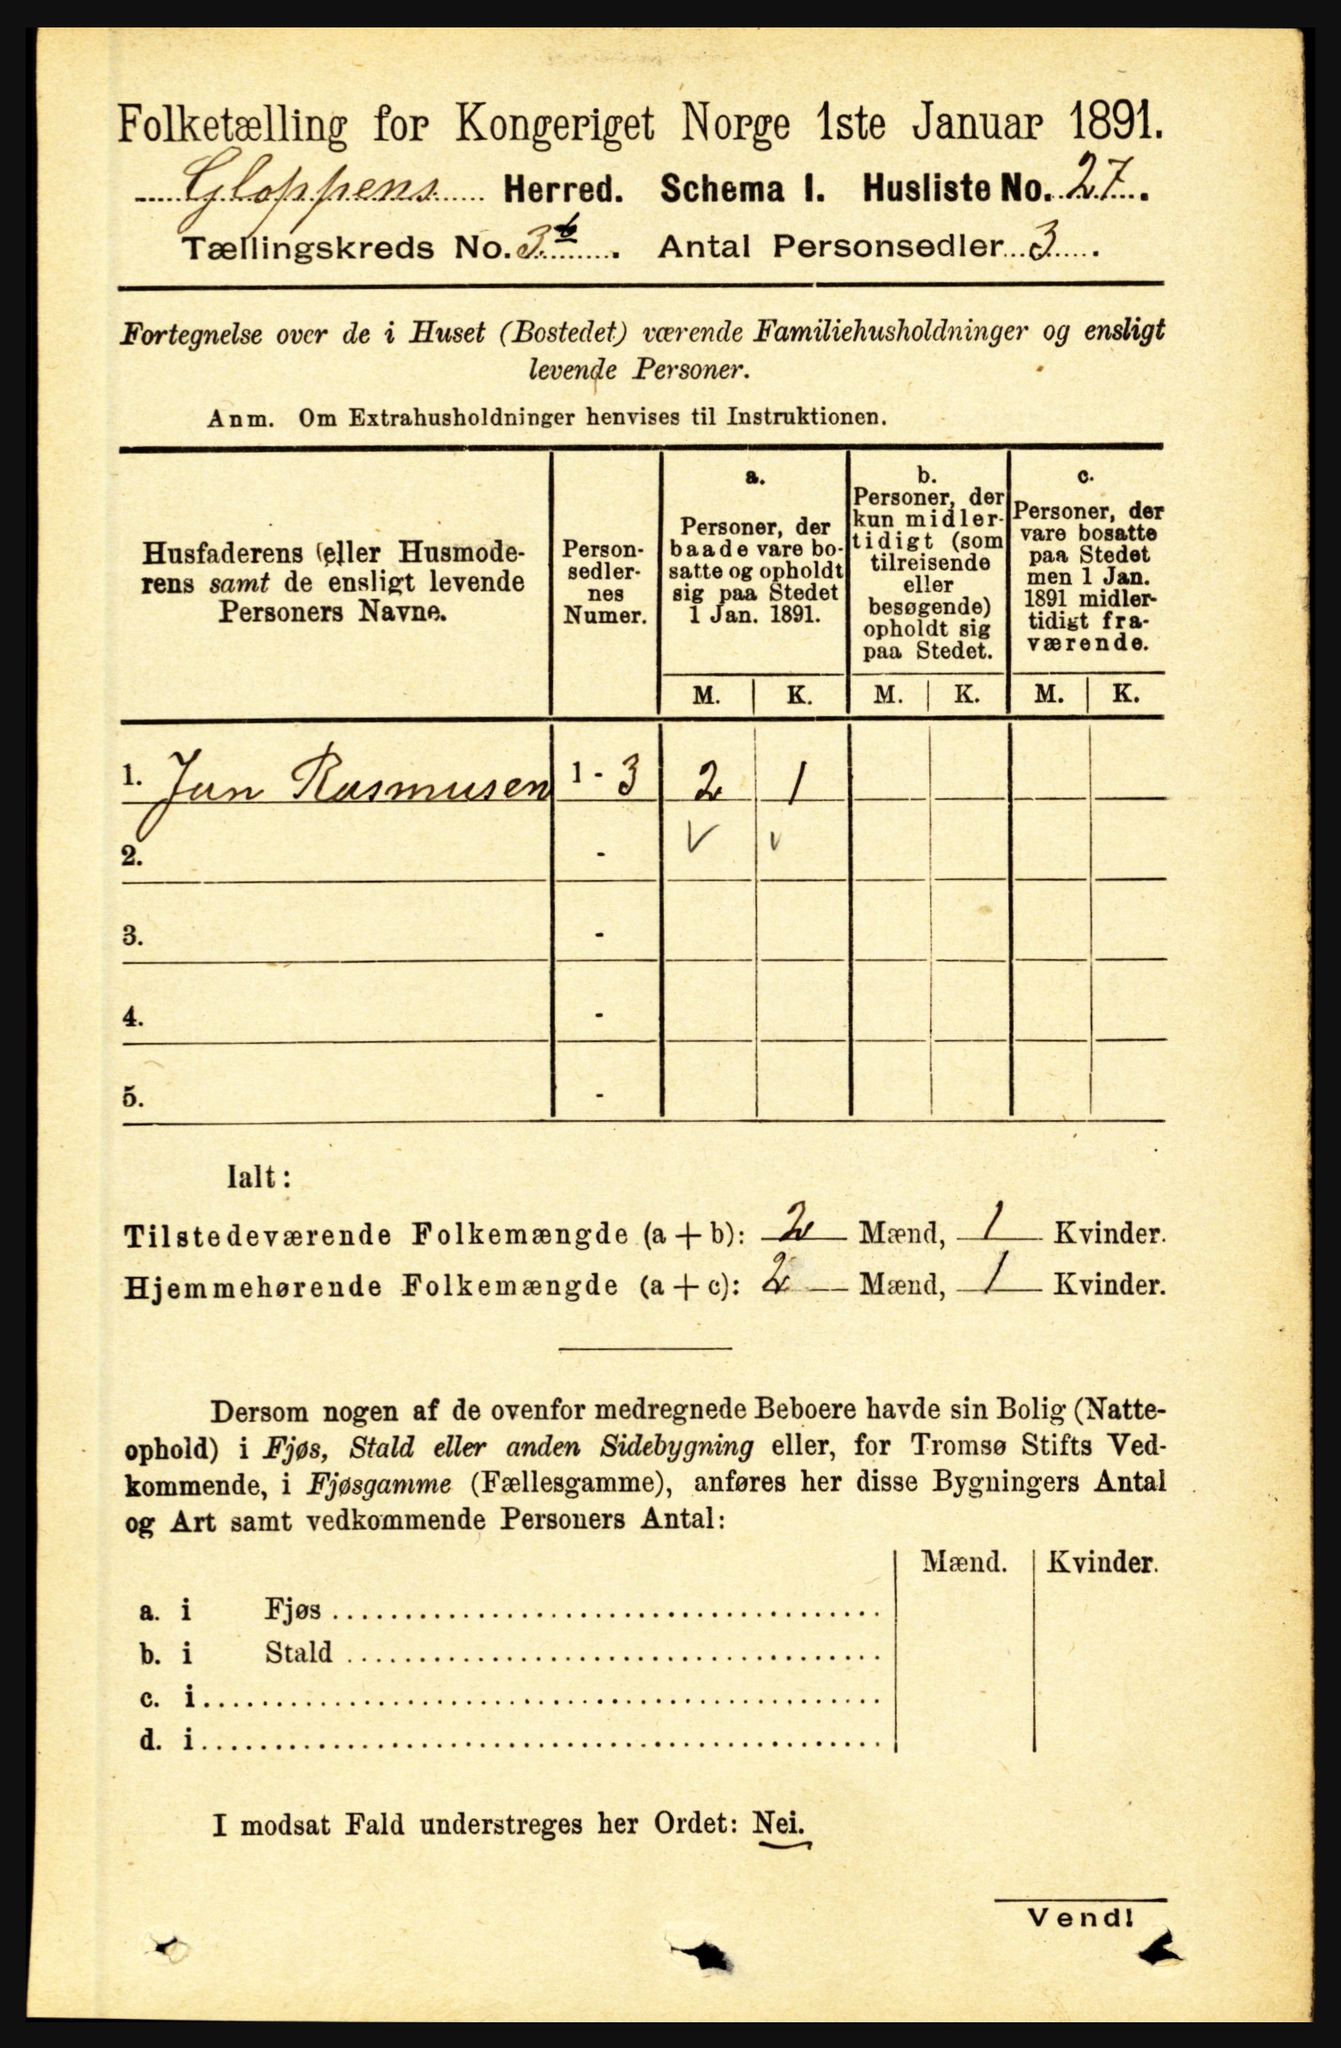 Folketælling for Kongeriget Norge 1ste Januar 1891.
Gloppens Herred. Schema I. Husliste No. 27.
Tællingskreds No. 3b. Antal Personsedler 3.
Fortegnelse over de i Huset (Bostedet) værende Familiehusholdninger og ensligt
levende Personer.
Anm. Om Extrahusholdninger henvises til Instruktionen.
Husfaderens (eller Husmode-
rens samt de ensligt levende
Personers Navne.
Person-
sedler-
nes
Numer.
a.
Personer, der
baade vare bo-
satte og opholdt
sig paa Stedet
1 Jan. 1891.
b.
Personer, der
kun midler-
tidigt (som
tilreisende
eller
besøgende)
opholdt sig
paa Stedet.
c.
Personer, der
vare bosatte
paa Stedet
men 1 Jan.
1891 midler-
tidigt fra-
værende.
M. K. M. K. M. K.
1. Jan Rasmusen 1 - 3 2 1
2. -
3. -
4. -
5. -
Ialt:
Tilstedeværende Folkemængde (a + b): 2 Mænd, 1 Kvinder.
Hjemmehørende Folkemængde (a + c): 2 Mænd, 1 Kvinder.
Dersom nogen af de ovenfor medregnede Beboere havde sin Bolig (Natte-
ophold) i Fjøs, Stald eller anden Sidebygning eller, for Tromsø Stifts Ved-
kommende, i Fjøsgamme (Fællesgamme), anføres her disse Bygningers Antal
og Art samt vedkommende Personers Antal:
Mænd. Kvinder.
a. i Fjøs
b. i Stald
c. i
d. i
I modsat Fald understreges her Ordet: Nei.
Vend!